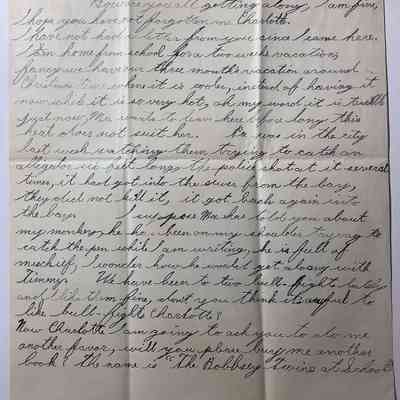 you all getting along, I am fine,
I hope you have not forgotten me Charlotte.
I have not had a letter from you since I came here.
I am home from school for a two weeks vacation,
fancy we have our three months vacation around
Christmas time where it is cooler, instead of having it
now while it is so very hot, oh my word it is terrible
just now, Ma wants to leave here before long this
heat does not suit her. Pa was in the city
last week watching them trying to catch an
alligator six feet long, the police shot at it several
times, it had got into the sewer from the bay,
they did not kill it, it got back again into
the bay. I suppose Ma has told you about
my monkey, he has been on my shoulder trying to
catch the pen while I am writing, he is full of
mischief, I wonder how he would get along with
Timmy. We have been to two bull-fights lately
and I like them fine, don't you think it is awful to
like bull-fights Charlotte?
Now Charlotte I am going to ask you to do me
another favor, will you please buy me another
book? the name is "The Bobbsey Twins at School